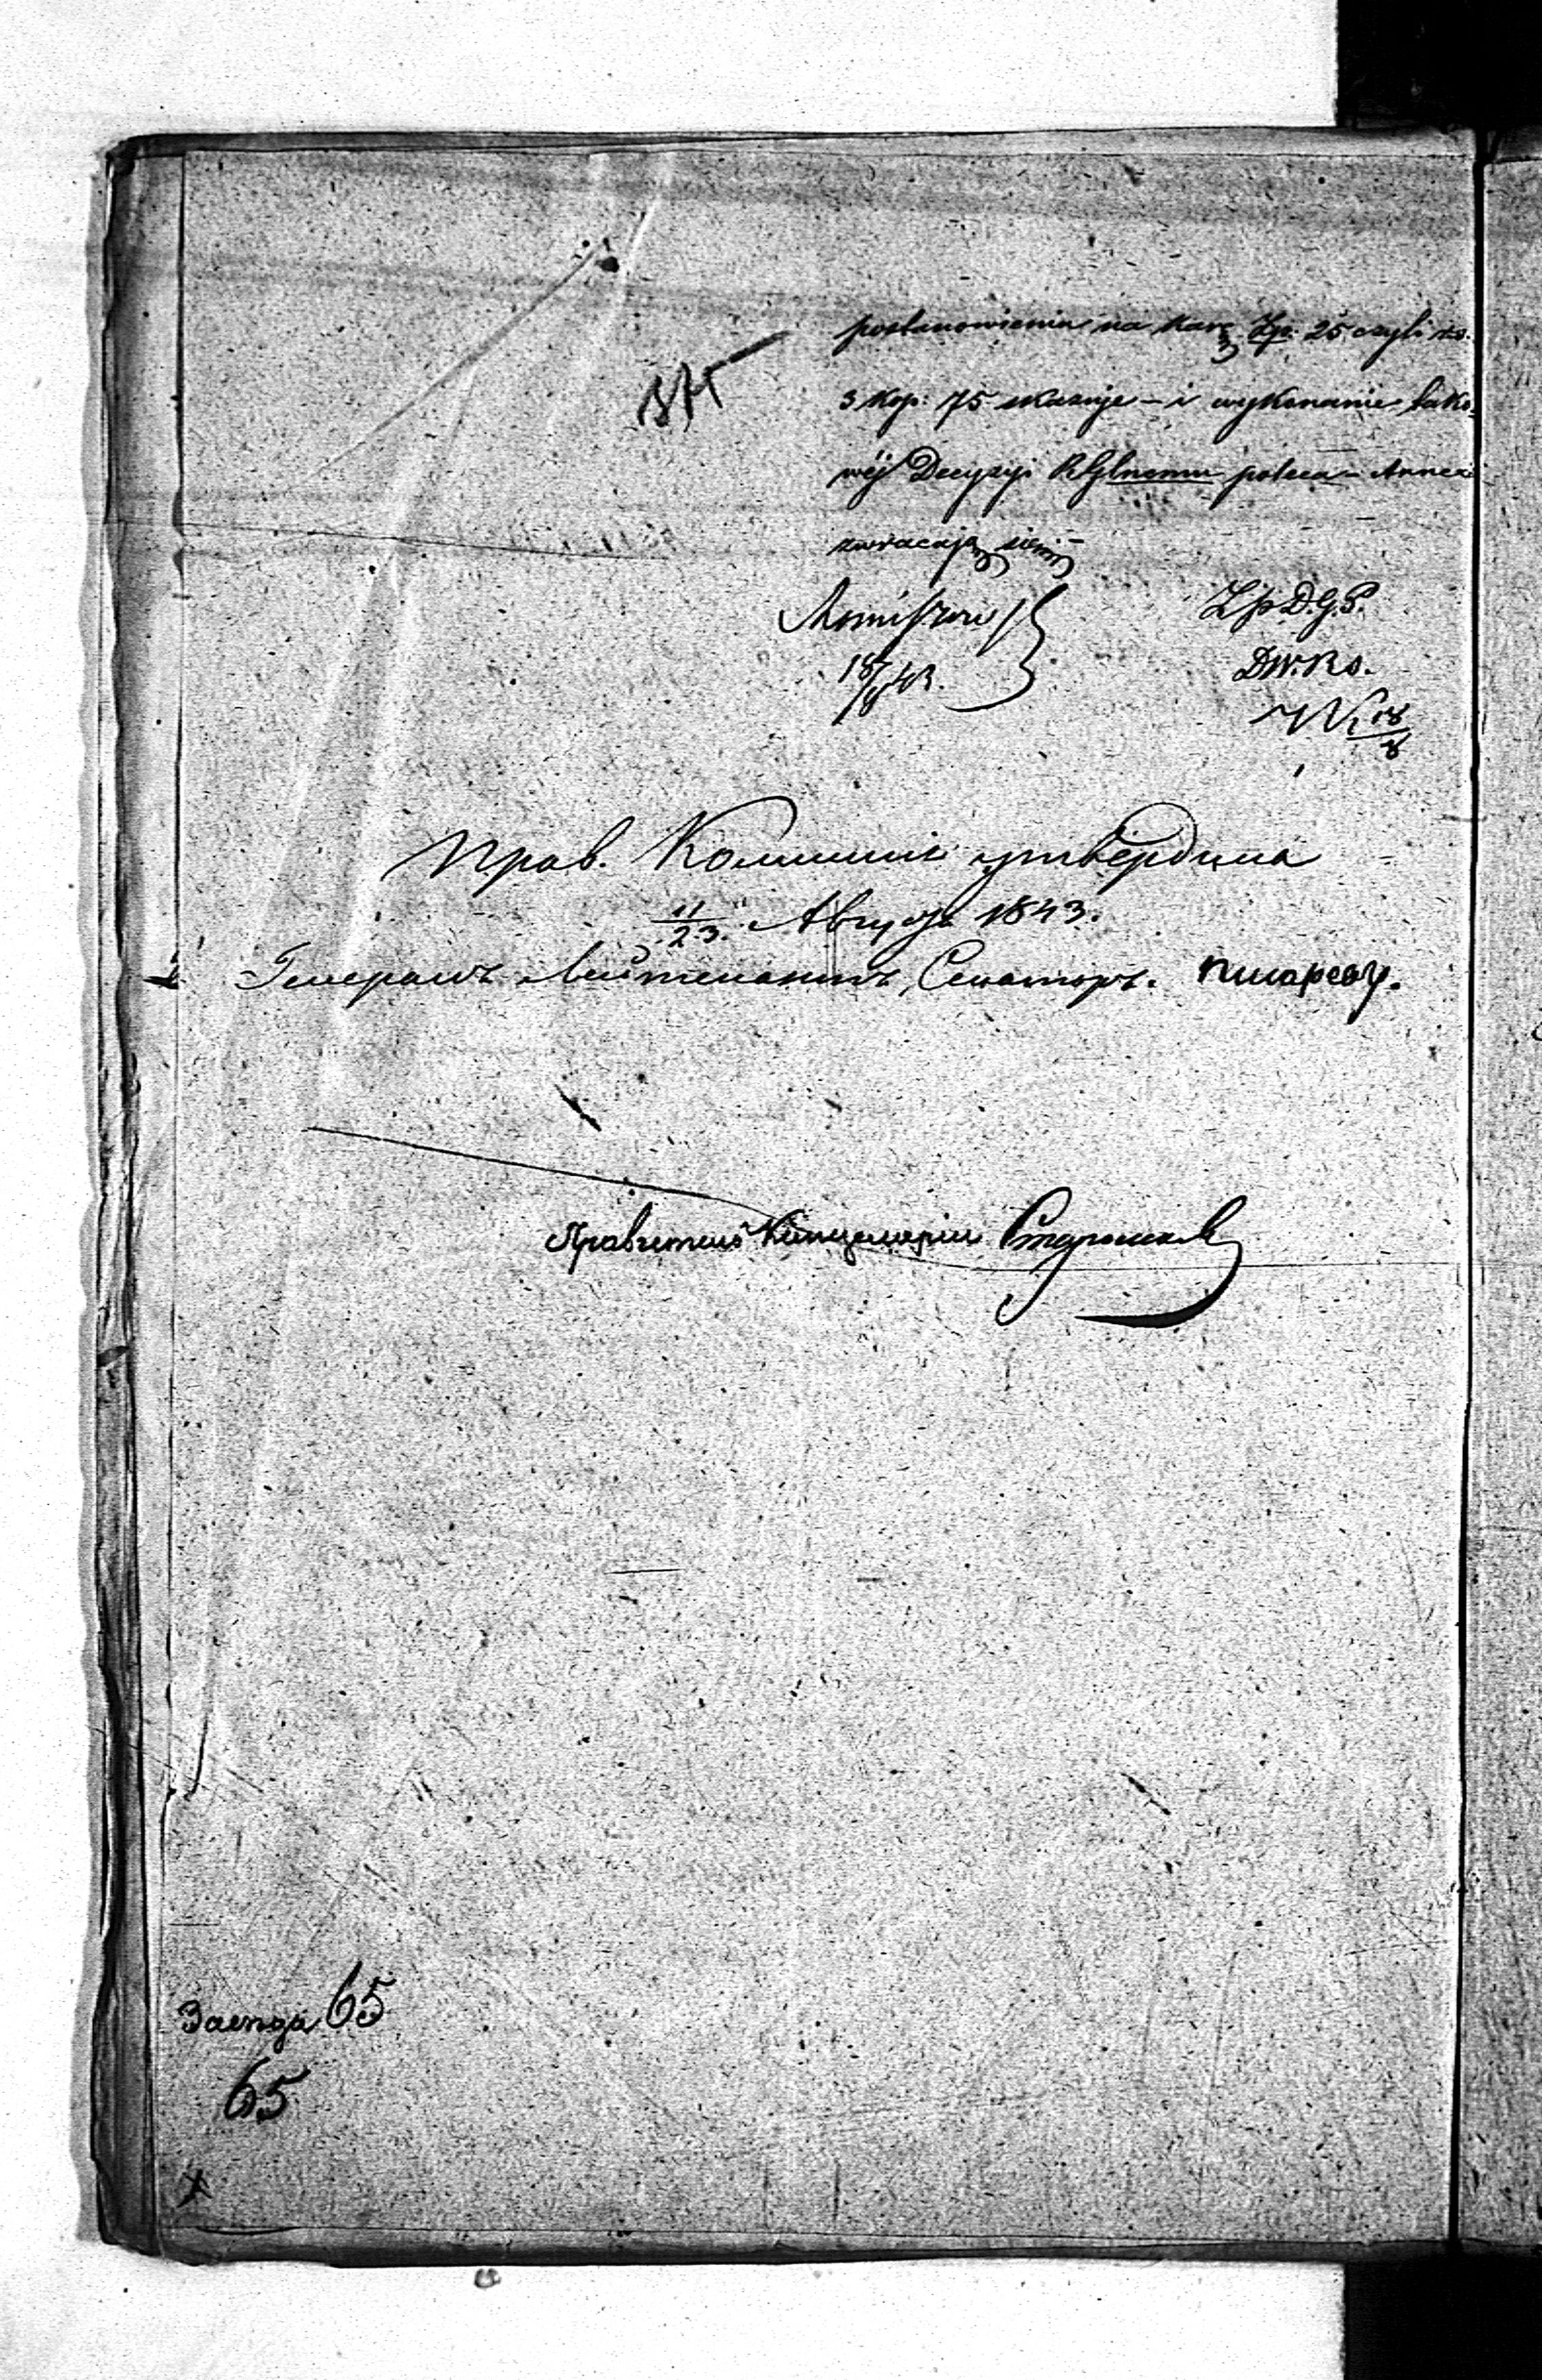 postanowienia na karę Zp: 25 czyli rs.
3 kop: 75 skazuje – i wykonanie tako-
wéj Decyzyi RGlnemu poleca – Annexa
zwracają się –
18/8 43.
Z p. D. G. P.
DW. Ks.
18/8
Прав. Коммиссія утвердила
11/23. Августа 1843.
Генералъ Лейтенантъ, Сенаторъ. Писаревъ.
Правитель Канцеляріи
65
65